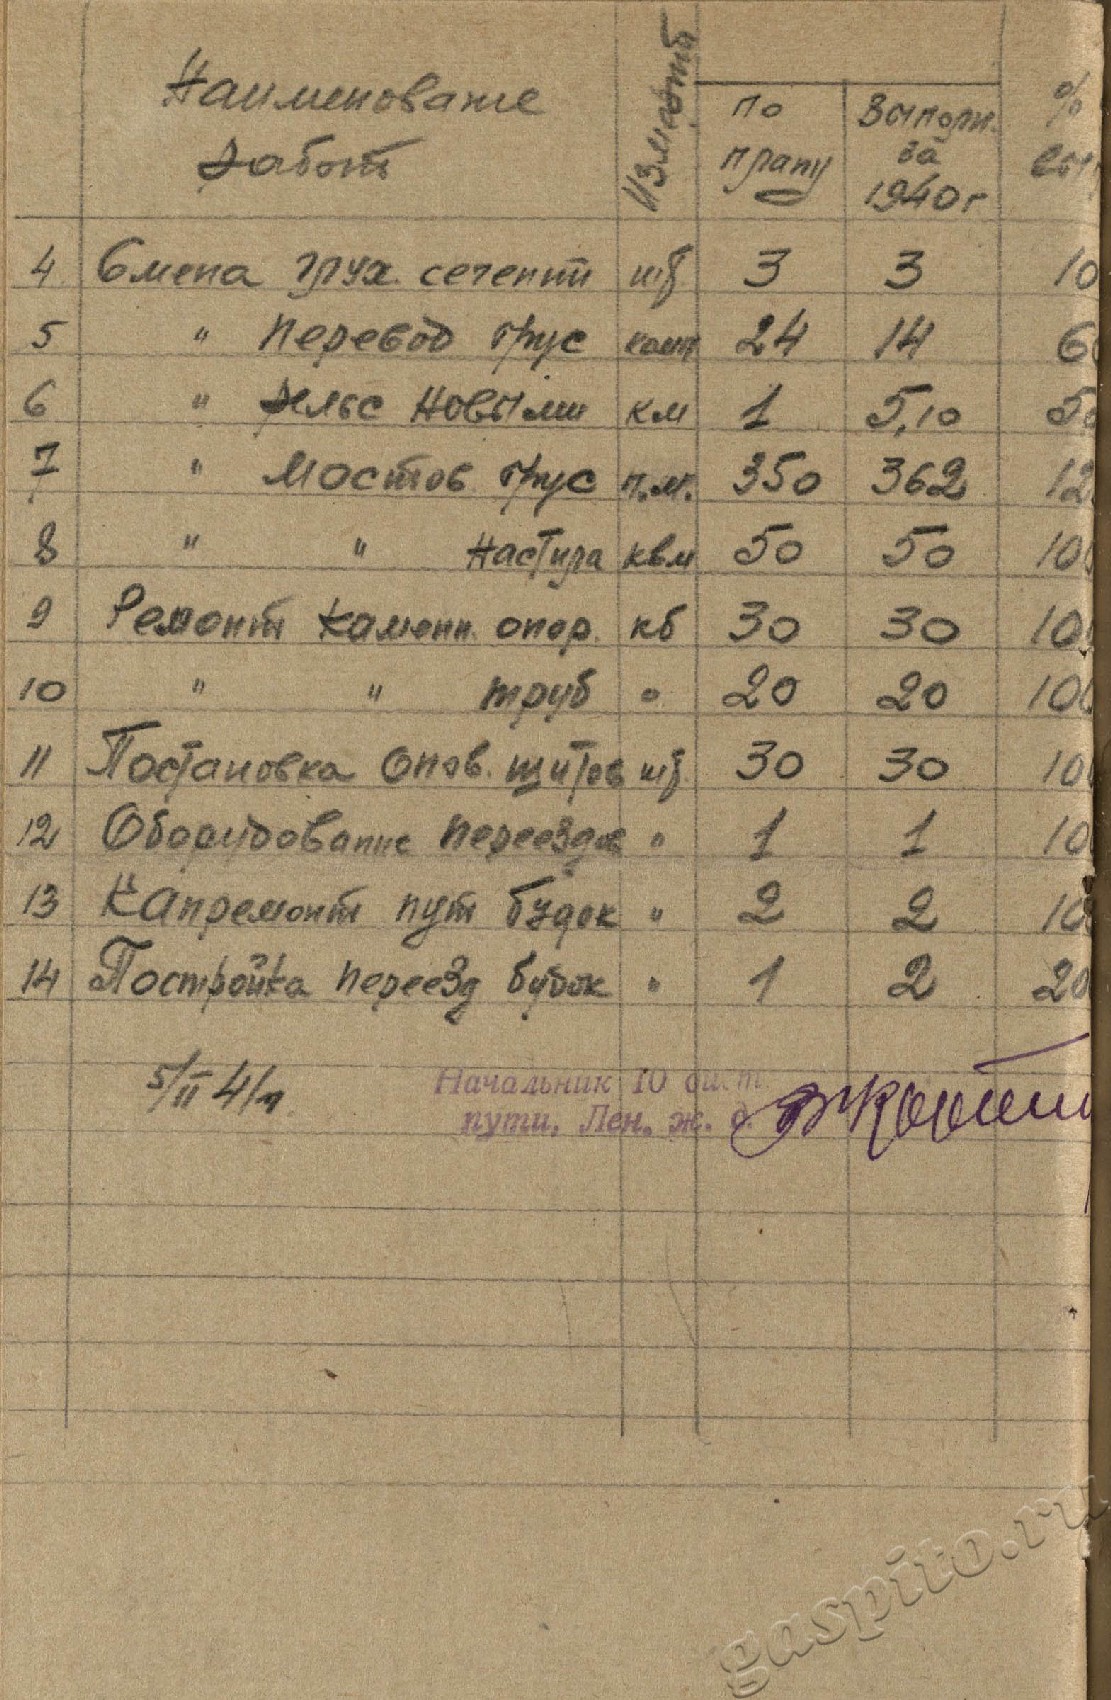 Наименование
работ
Измеритель
по
плану
Выполн.
за
1940 г
%
вып
4 Смена глух. сечений шт 3 3 10
5 " перевод брус комп 24 14 6
6 " рельс новыми км 1 5,10 50
7 " мостов. брус п.м. 350 362 12
8 " " настила квм 50 50 100
9 Ремонт каменн. опор. кб 30 30 100
10 " " труб " 20 20 100
11 Постановка опов. щитов шт. 30 30 100
12 Оборудование переездов " 1 1 10
13 Капремонт пут будок " 2 2 10
14 Постройка переезд будок " 1 2 20
5/II 41 г.
Начальник 10 дист.
пути, Лен. ж. д.
gaspito.ru